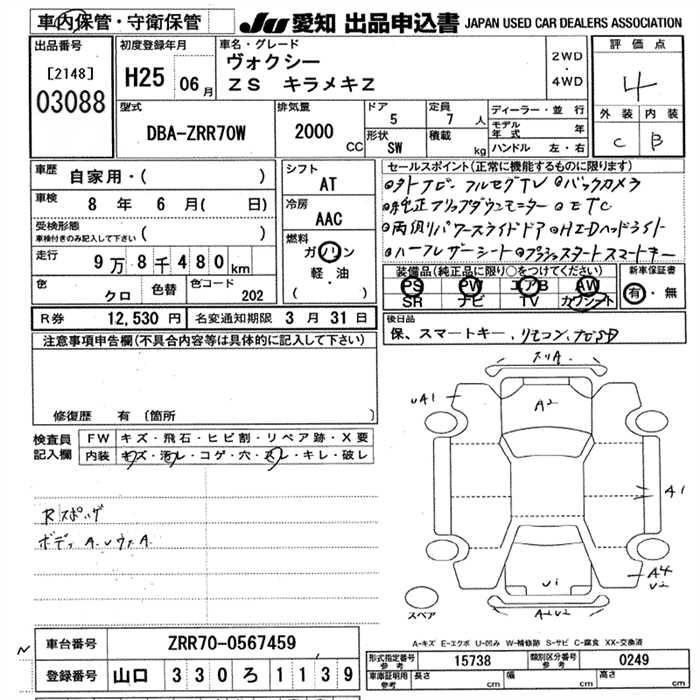 車内保管・守衛保管
JU 愛知 出品申込書 JAPAN USED CAR DEALERS ASSOCIATION
出品番号
[2148]
03088
初度登録年月
H25 06月
車名・グレード
ヴォクシー
ZS キラメキZ
2WD
・
4WD
評価点
4
外装 内装
C B
型式
DBA-ZRR70W
排気量
2000 CC
ドア
5
定員
7 人
形状
SW
積載
kg
ディーラー・並行
モデル年式 年
ハンドル 左・右
車歴
自家用・( )
車検
8 年 6 月( 日)
受検形態
車検付きのみ記入して下さい ( )
走行
9万8千480km
色
クロ
色替
色コード
202
シフト
AT
冷房
AAC
燃料
ガソリン
軽・油
( )
セールスポイント(正常に機能するものに限ります)
◎外ナビ フルセグTV ◎バックカメラ
◎純正フリップダウンモニター ◎ETC
◎両側パワースライドドア ◎HIDヘッドライト
◎ハーフレザーシート ◎プッシュスタートスマートキー
装備品(純正品に限り○をつけてください)
PS PW エアB AW
SR ナビ TV カワシート
新車保証書
有・無
R券 12,530 円 名変通知期限 3 月 31 日
後日品
保、スマートキー、リモコン、ナビSD
注意事項申告欄(不具合内容等は具体的に記入して下さい)
修復歴 有 〔箇所
検査員
記入欄
FW キズ・飛石・ヒビ割・リペア跡・X要
内装 キズ・汚レ・コゲ・穴・スレ・キレ・破レ
Rスポイラ
ボディ A.Uヴァ.A
スリA
UA1
A2
A1
A4
U2
U1
A2U2
スペア
A-キズ E-エクボ U-凹み W-補修跡 S-サビ C-腐食 XX-交換済
車台番号 ZRR70-0567459
登録番号 山口 330 ろ 1139
形式指定番号
参考
15738
類別区分番号
参考
0249
車庫証明用
参考
長さ cm 幅 cm 高さ cm